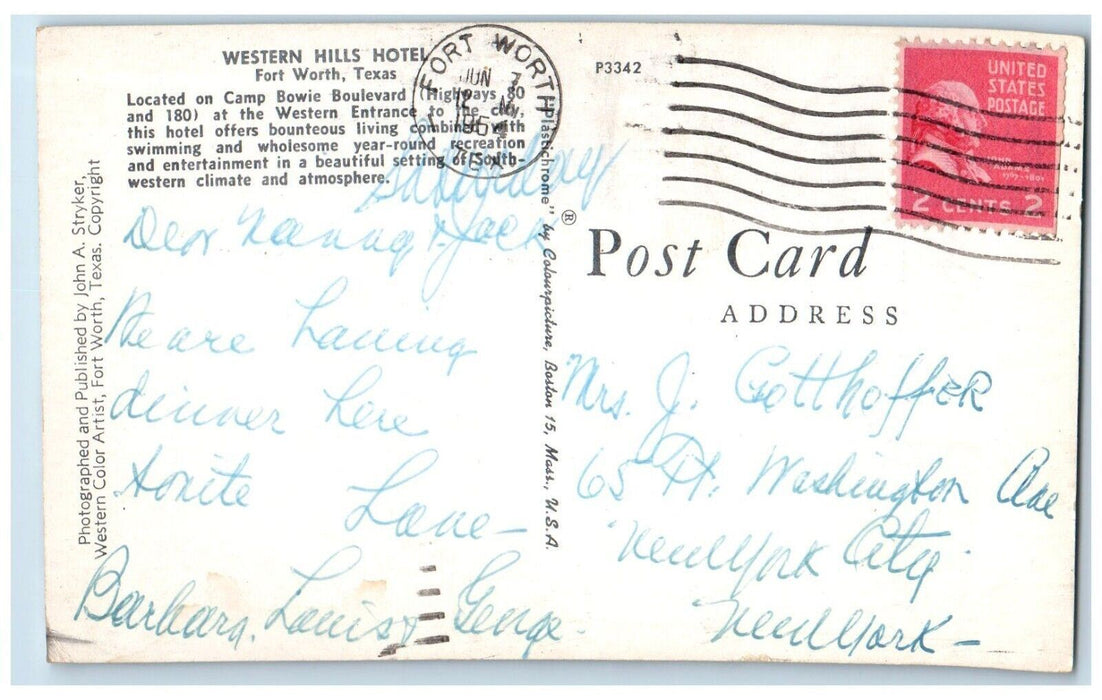 WESTERN HILLS HOTEL
Fort Worth, Texas
Located on Camp Bowie Boulevard (Highways 80
and 180) at the Western Entrance to the city,
this hotel offers bounteous living combined with
swimming and wholesome year-round recreation
and entertainment in a beautiful setting of South-
western climate and atmosphere.
Photographed and Published by John A. Stryker,
Western Color Artist, Fort Worth, Texas. Copyright
Saturday
Dear Nanny & Jack
We are having
dinner here
tonite
Love –
Barbara, Louise George
"Plastichrome" ® by Colourpicture, Boston 15, Mass., U.S.A.
FORT WORTH
JUN 7
12 M
TEX
P3342
UNITED
STATES
POSTAGE
JOHN
ADAMS
1797-1801
2 CENTS 2
Post Card
ADDRESS
Mrs. J. GotthoffeR
65 Ft. Washington Ave
New York City
New York –